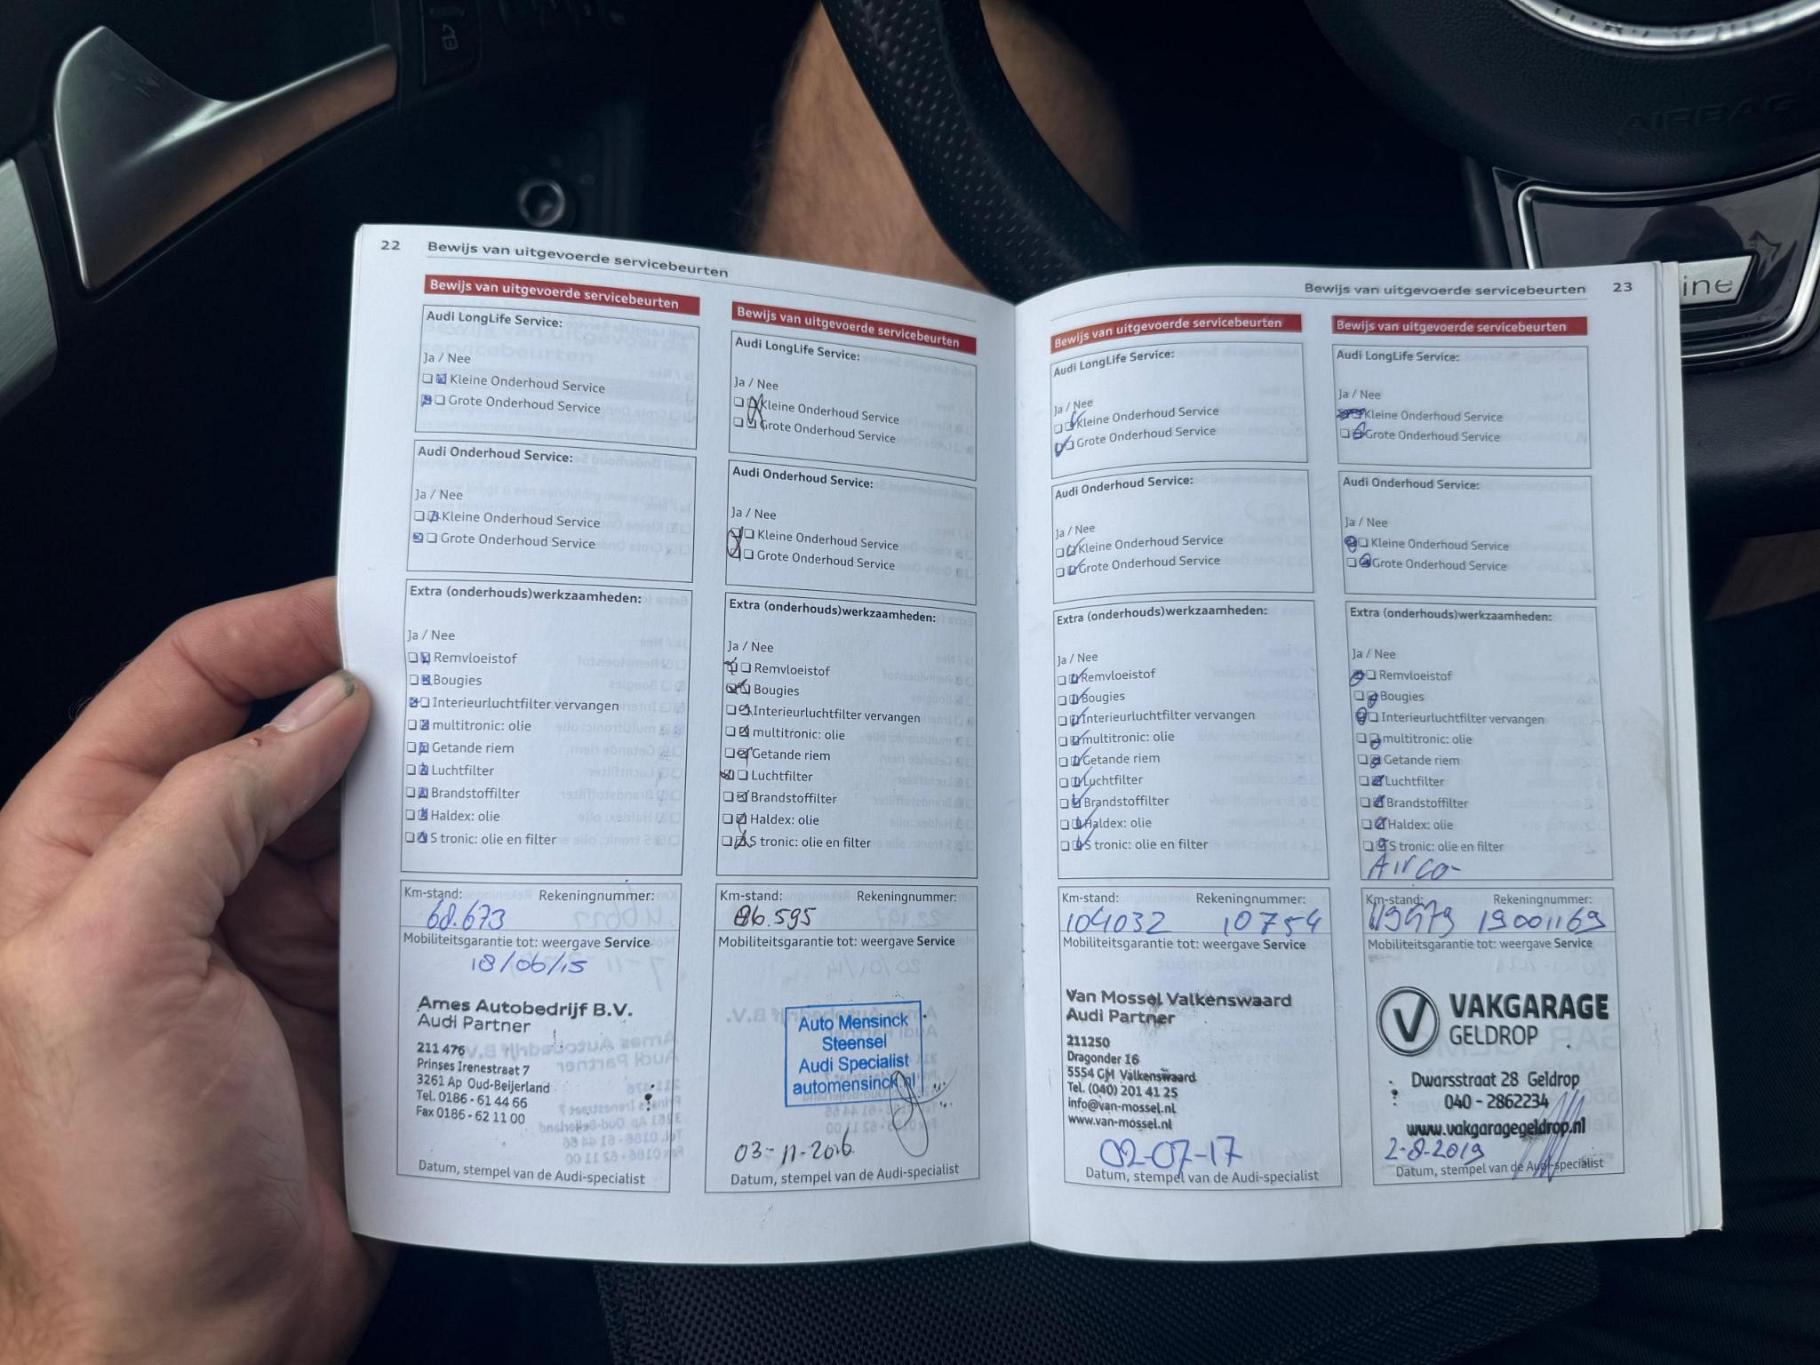 22 Bewijs van uitgevoerde servicebeurten
Bewijs van uitgevoerde servicebeurten
Audi LongLife Service:
Ja / Nee
Kleine Onderhoud Service
Grote Onderhoud Service
Audi Onderhoud Service:
Ja / Nee
Kleine Onderhoud Service
Grote Onderhoud Service
Extra (onderhouds)werkzaamheden:
Ja / Nee
Remvloeistof
Bougies
Interieurluchtfilter vervangen
multitronic: olie
Getande riem
Luchtfilter
Brandstoffilter
Haldex: olie
S tronic: olie en filter
Km-stand: Rekeningnummer:
68.673
Mobiliteitsgarantie tot: weergave Service
18/06/15
Ames Autobedrijf B.V.
Audi Partner
211 476
Prinses Irenestraat 7
3261 Ap Oud-Beijerland
Tel. 0186 - 61 44 66
Fax 0186 - 62 11 00
Datum, stempel van de Audi-specialist
Bewijs van uitgevoerde servicebeurten
Audi LongLife Service:
Ja / Nee
Kleine Onderhoud Service
Grote Onderhoud Service
Audi Onderhoud Service:
Ja / Nee
Kleine Onderhoud Service
Grote Onderhoud Service
Extra (onderhouds)werkzaamheden:
Ja / Nee
Remvloeistof
Bougies
Interieurluchtfilter vervangen
multitronic: olie
Getande riem
Luchtfilter
Brandstoffilter
Haldex: olie
S tronic: olie en filter
Km-stand: Rekeningnummer:
86.595
Mobiliteitsgarantie tot: weergave Service
Auto Mensinck
Steensel
Audi Specialist
automensinck.nl
03-11-2016
Datum, stempel van de Audi-specialist
Bewijs van uitgevoerde servicebeurten 23
Bewijs van uitgevoerde servicebeurten
Audi LongLife Service:
Ja / Nee
Kleine Onderhoud Service
Grote Onderhoud Service
Audi Onderhoud Service:
Ja / Nee
Kleine Onderhoud Service
Grote Onderhoud Service
Extra (onderhouds)werkzaamheden:
Ja / Nee
Remvloeistof
Bougies
Interieurluchtfilter vervangen
multitronic: olie
Getande riem
Luchtfilter
Brandstoffilter
Haldex: olie
S tronic: olie en filter
Km-stand: Rekeningnummer:
104032 10754
Mobiliteitsgarantie tot: weergave Service
Van Mossel Valkenswaard
Audi Partner
211250
Dragonder 16
5554 GM Valkenswaard
Tel. (040) 201 41 25
info@van-mossel.nl
www.van-mossel.nl
02-07-17
Datum, stempel van de Audi-specialist
Bewijs van uitgevoerde servicebeurten
Audi LongLife Service:
Ja / Nee
Kleine Onderhoud Service
Grote Onderhoud Service
Audi Onderhoud Service:
Ja / Nee
Kleine Onderhoud Service
Grote Onderhoud Service
Extra (onderhouds)werkzaamheden:
Ja / Nee
Remvloeistof
Bougies
Interieurluchtfilter vervangen
multitronic: olie
Getande riem
Luchtfilter
Brandstoffilter
Haldex: olie
S tronic: olie en filter
Airco-
Km-stand: Rekeningnummer:
19001169
Mobiliteitsgarantie tot: weergave Service
VAKGARAGE
GELDROP
Dwarsstraat 28 Geldrop
040 - 2862234
www.vakgaragegeldrop.nl
2-8-2019
Datum, stempel van de Audi-specialist
AIRBAG
ine